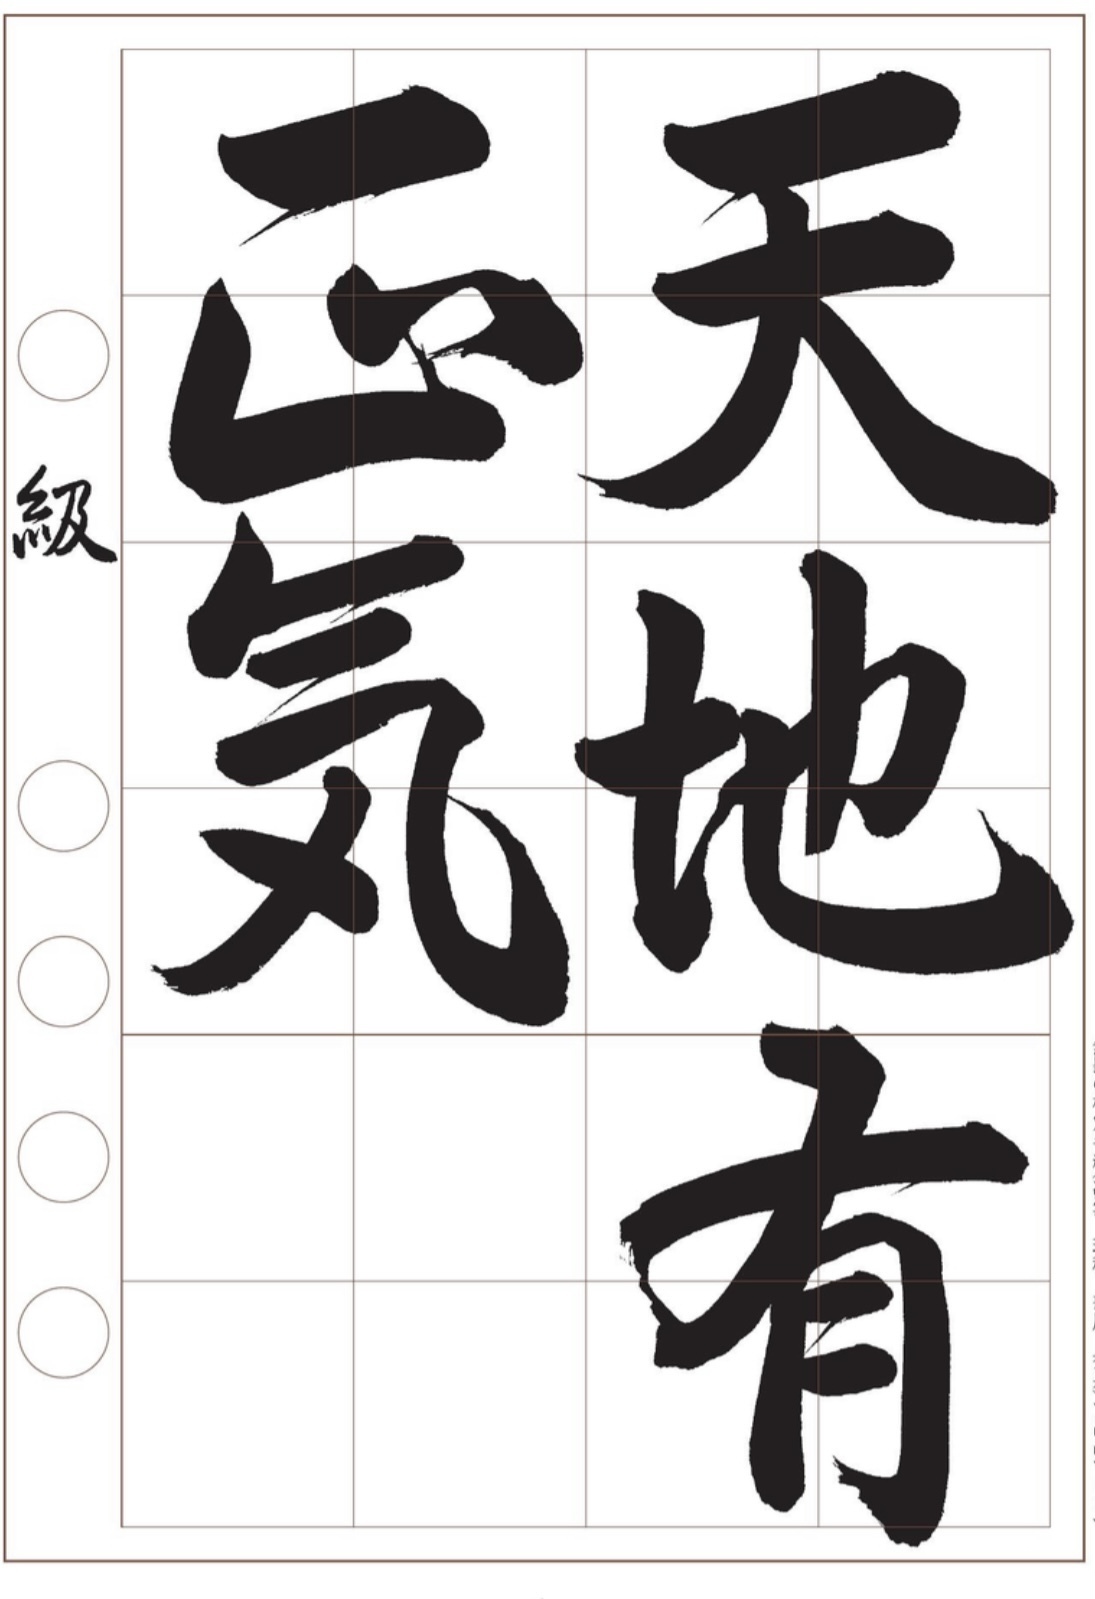 天地有
正気
級